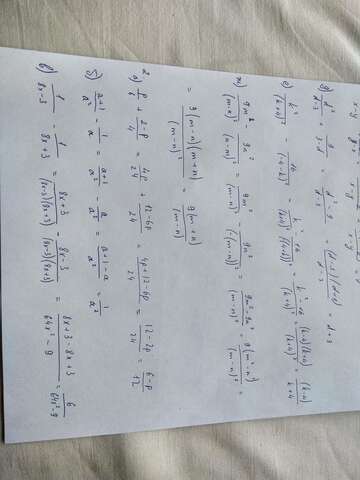 д) d²/(d-3) - 9/(d-3) = (d²-9)/(d-3) = ((d-3)(d+3))/(d-3) = d+3
е) k²/(k+4)² - 16/(-4-k)² = (k²-16)/((k+4)²) = ((k-4)(k+4))/(k+4)² = (k-4)/(k+4)
ж) 9m²/(m-n)² - 9n²/(n-m)² = 9m²/(m-n)² - 9n²/(-(m-n))² = (9m²-9n²)/(m-n)² = 9(m²-n²)/(m-n)² =
= 9(m-n)(m+n)/(m-n)² = 9(m+n)/(m-n)
2
а) p/6 + (2-p)/4 = 4p/24 + (12-6p)/24 = (4p+12-6p)/24 = (12-2p)/24 = (6-p)/12
б) (a+1)/a² - 1/a = (a+1)/a² - a/a² = (a+1-a)/a² = 1/a²
в) 1/(8x-3) - 1/(8x+3) = (8x+3)/((8x-3)(8x+3)) - (8x-3)/((8x-3)(8x+3)) = (8x+3-8x+3)/(64x²-9) = 6/(64x²-9)